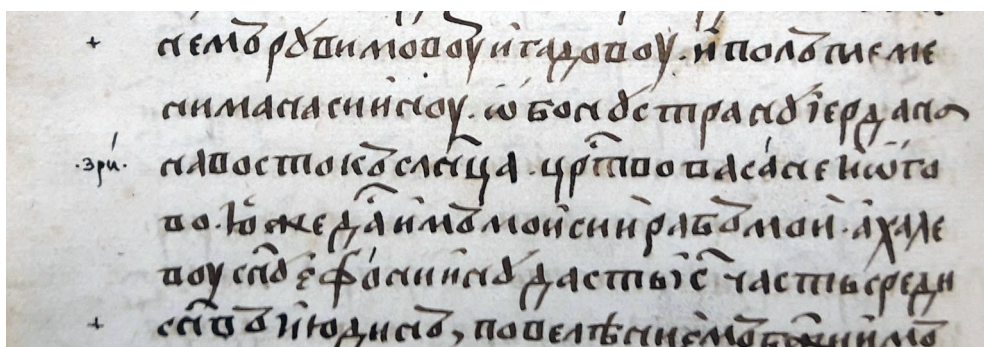 племѣ рꙋвимовоу и҆ гадовоу. и҆ полъ племе
ни манасиину. ѡ҆бону страну їердано
.зри. на востокъ слн҃ца. црⷭ҇тво васане и҆ ѡ҆го
во. ю҆же да́ и҆мъ мои҆сии҆ рабъ мои. а҆ хале
воу сн҃ꙋ е҆фо́ниинꙋ дасть і҆с҃ часть среди
сн҃въ и҆юдинъ, повелѣниемъ бж҃иимъ